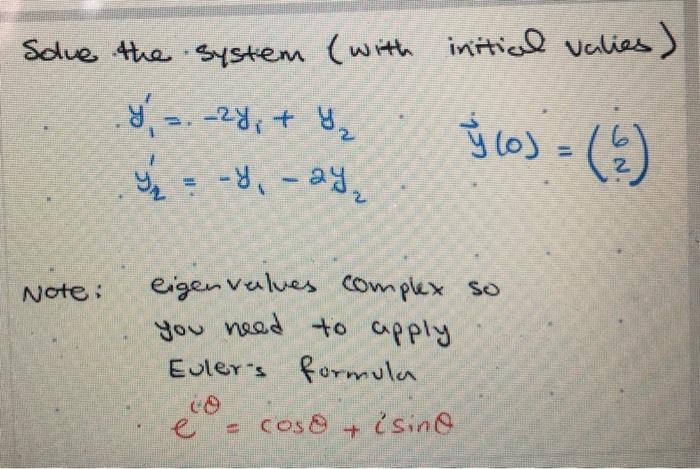 Solve the system (with initial values)
y₁' = -2y₁ + y₂
y⃗(0) = (6 2)
y₂' = -y₁ - 2y₂
Note: eigenvalues complex so
you need to apply
Euler's formula
e^{iθ} = cosθ + i sinθ